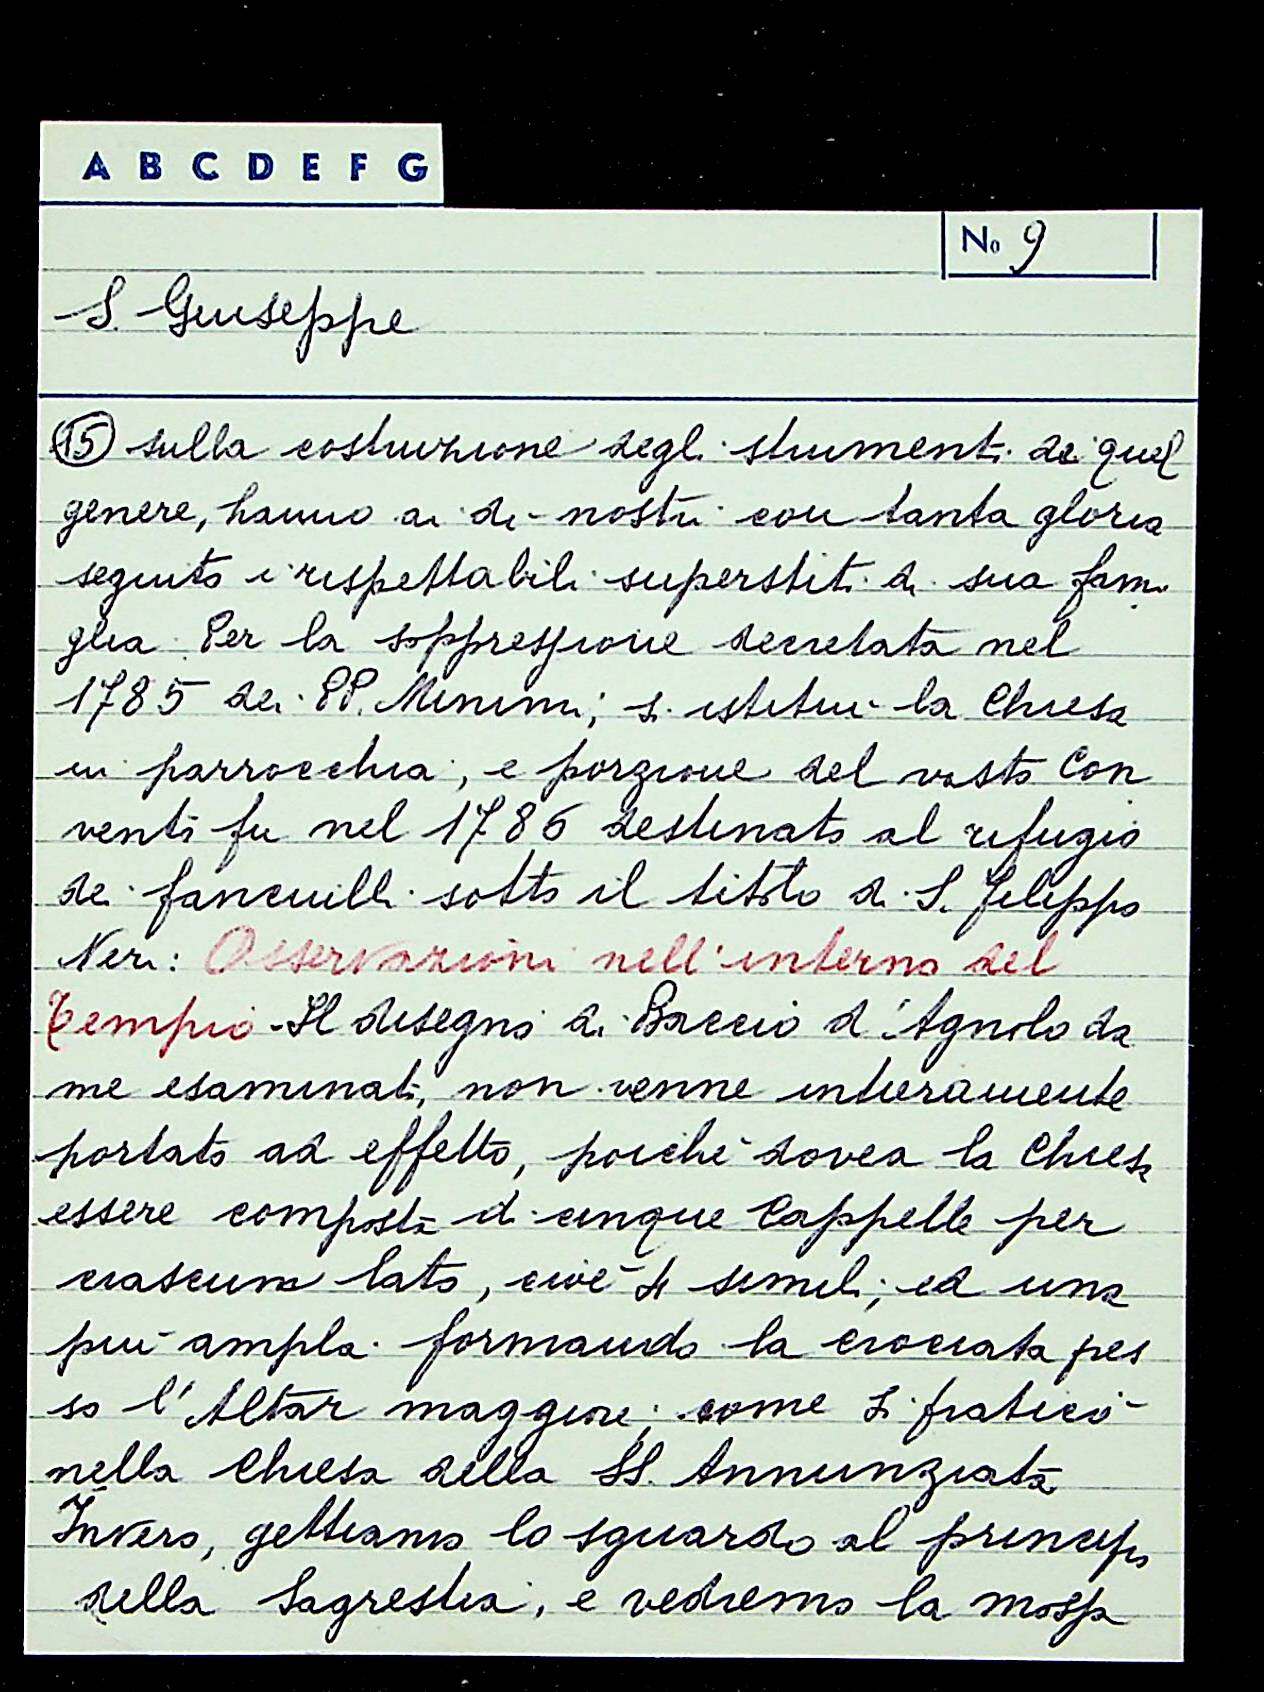 A B C D E F G
No 9
S. Giuseppe
(15) sulla costruzione degli strumenti di quel
genere, hanno ai dì nostri con tanta gloria
seguito i rispettabili superstiti di sua fami
glia. Per la soppressione decretata nel
1785 dei PP. Minimi; si istituì la Chiesa
in parrocchia, e porzione del vasto Con
vento fu nel 1786 destinato al rifugio
dei fanciulli sotto il titolo di S. Filippo
Neri: Osservazioni nell'interno del
Tempio - Il disegno di Baccio d'Agnolo da
me esaminato, non venne intieramente
portato ad effetto, poiché dovea la Chiesa
essere composta di cinque Cappelle per
ciascuno lato, cioè 4 simili; ed una
più ampla formando la crociata pres
so l'Altar maggiore; come si praticò
nella Chiesa della SS. Annunziata
Invero, gettiamo lo sguardo al principio
della Sagrestia, e vedremo la mossa